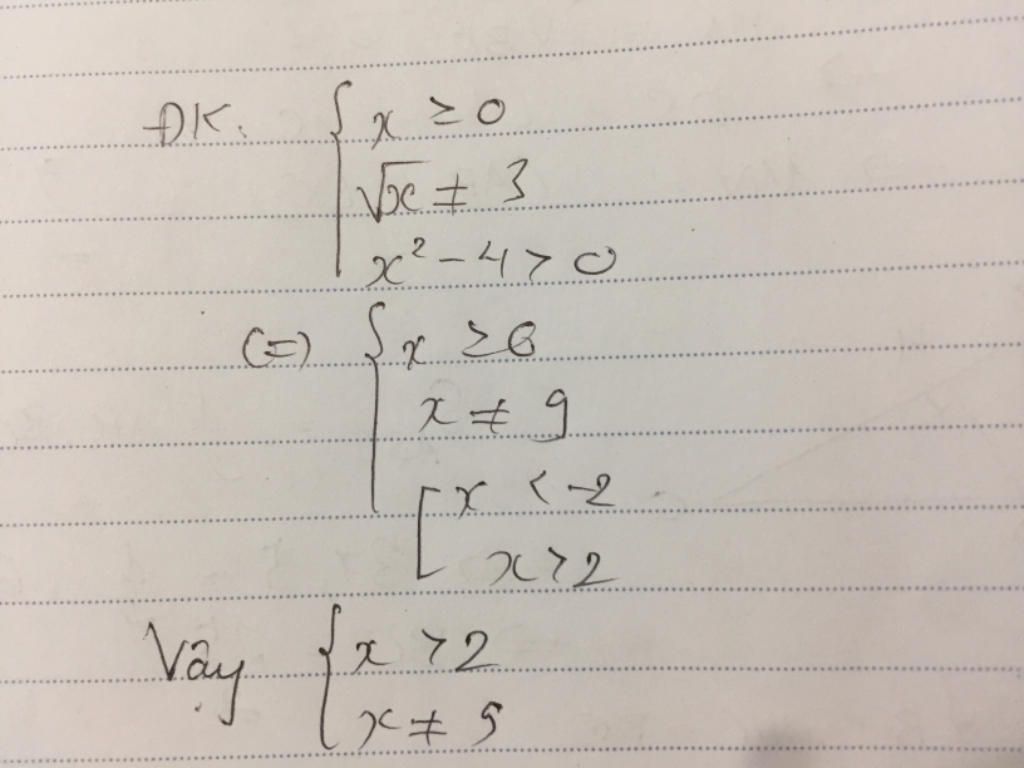 ĐK. { x ≥ 0
√x ≠ 3
x² - 4 > 0
(=) { x ≥ 0
x ≠ 9
[ x < -2
x > 2
Vậy { x > 2
x ≠ 9